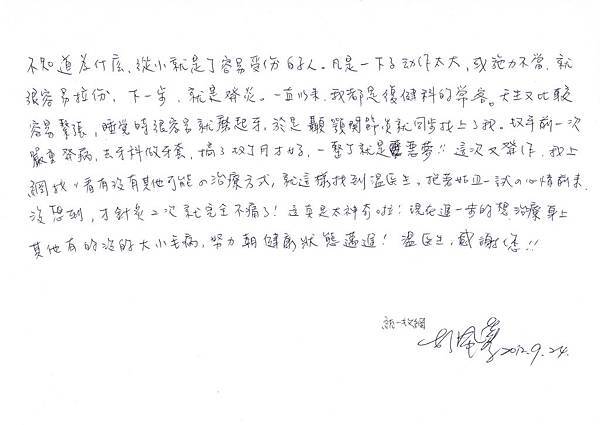 不知道為什庅、從小就是了容易受伤的人。凡是一下子动作太大，或施力不當，就
很容易拉伤，下一步，就是發炎。一直以來，我都是復健科的常客。天生又比較
容易緊張，睡觉時很容易就磨起牙，於是顳顎関節炎就同步找上了我。故牙前一次
嚴重發病，去牙科做牙套，搞了好了月才好，一整了就是噩夢!! 這次又發作，我上
網找，看有沒有其他可能の治療方式，就這樣找到温医生，抱著姑且一試の心情前來
沒想到，才針灸二次就完全不痛了! 这真是太神奇啦! 現在進一步的想治療身上
其他有的沒的大小毛病，努力朝健康狀態邁進! 温医生，感謝您!!
2012.9.24.